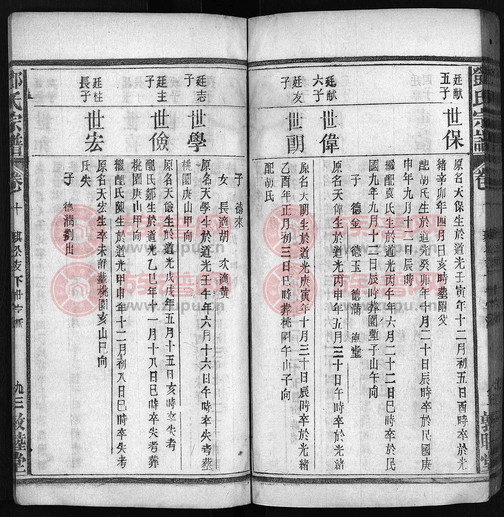 鄧氏宗譜
卷
廷獻五子
世保
原名天保生於道光壬寅年十二月初五日酉時卒於光
緒辛卯年四月日亥時葬
配胡氏生於道光癸卯年十二月二十日辰時卒於民國庚
申年九月十二日辰時
廷獻六子
世偉
原名天偉生於道光丙申年五月二十日辰時卒於光緒
繼配袁氏生於道光丙午年六月二十二日巳時卒於民
國九年九月十二日辰時葬園墨子山午向
子 德金 德玉 德蒲 德鑾
廷友子
世明
原名天明生於道光庚寅年十月三十日辰時卒於光緒
乙酉年正月初三日巳時葬桃園午山子向
配胡氏
廷志子
世學
子 德來
女 長適胡 次適黃
原名天學生於道光壬午年六月十六日午時卒失考葬
桃園庚山甲向
廷主子
世儉
原名天儉生於道光戊戌年五月十五日亥時卒失考
配氏鄭生於道光乙巳年十月初八日巳時卒失考葬
桃園庚山甲向
繼配氏陳生於道光甲申年十二月初八日巳時卒失考
廷柱長子
世宏
原名天宏生卒未詳葬桃園亥山巳向
氏失
子 德潤劉出
鄧氏宗譜
卷十
下
九三
敦睦堂